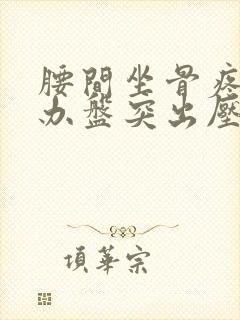 腰間坐骨疼
办盤突出壓
項華宗